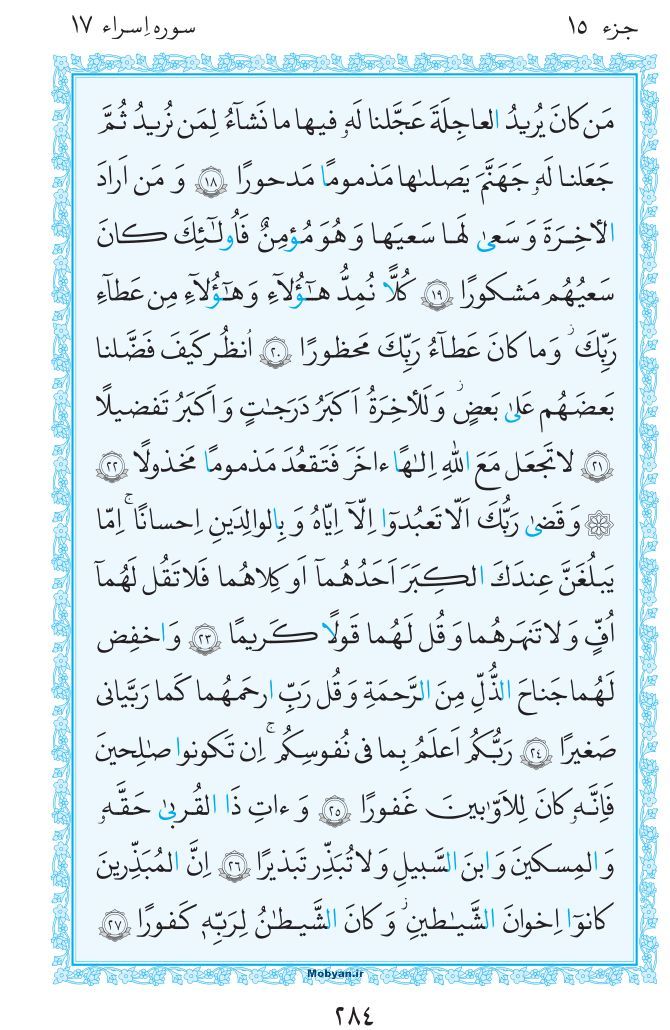 جزء ۱۵
سوره اِسراء ۱۷
مَن کانَ یُریدُ العاجِلَةَ عَجَّلنا لَهٗ فیها ما نَشآءُ لِمَن نُریدُ ثُمَّ
جَعَلنا لَهٗ جَهَنَّمَ یَصلىٰها مَذمومًا مَدحورًا ﴿۱۸﴾ وَ مَن اَرادَ
الأخِرَةَ وَ سَعىٰ لَها سَعیَها وَ هُوَ مُؤمِنٌ فَاُولٰٓئِكَ کانَ
سَعیُهُم مَشکورًا ﴿۱۹﴾ کُلًّا نُمِدُّ هٰٓؤُلآءِ وَ هٰٓؤُلآءِ مِن عَطآءِ
رَبِّكَ ۚ وَ ما کانَ عَطآءُ رَبِّكَ مَحظورًا ﴿۲۰﴾ اُنظُر کَیفَ فَضَّلنا
بَعضَهُم عَلىٰ بَعضٍ ۚ وَ لَلأخِرَةُ اَکبَرُ دَرَجٰتٍ وَ اَکبَرُ تَفضیلًا
﴿۲۱﴾ لا تَجعَل مَعَ اللهِ اِلٰهًا ءاخَرَ فَتَقعُدَ مَذمومًا مَخذولًا ﴿۲۲﴾
۞ وَ قَضىٰ رَبُّكَ اَلّا تَعبُدوٓا اِلّآ اِیّاهُ وَ بِالوالِدَینِ اِحسانًا ۚ اِمّا
یَبلُغَنَّ عِندَكَ الکِبَرَ اَحَدُهُمآ اَو کِلاهُما فَلا تَقُل لَهُمآ
اُفٍّ وَ لا تَنهَرهُما وَ قُل لَهُما قَولًا کَریمًا ﴿۲۳﴾ وَ اخفِض
لَهُما جَناحَ الذُّلِّ مِنَ الرَّحمَةِ وَ قُل رَبِّ ارحَمهُما کَما رَبَّیانی
صَغیرًا ﴿۲۴﴾ رَبُّکُم اَعلَمُ بِما فی نُفوسِکُم ۚ اِن تَکونوا صٰلِحینَ
فَاِنَّهٗ کانَ لِلاَوّٰبینَ غَفورًا ﴿۲۵﴾ وَ ءاتِ ذَا القُربىٰ حَقَّهٗ
وَ المِسکینَ وَ ابنَ السَّبیلِ وَ لا تُبَذِّر تَبذیرًا ﴿۲۶﴾ اِنَّ المُبَذِّرینَ
کانوٓا اِخوانَ الشَّیٰطینِ ۚ وَ کانَ الشَّیطٰنُ لِرَبِّهٖ کَفورًا ﴿۲۷﴾
Mobyan.ir
۲۸۴